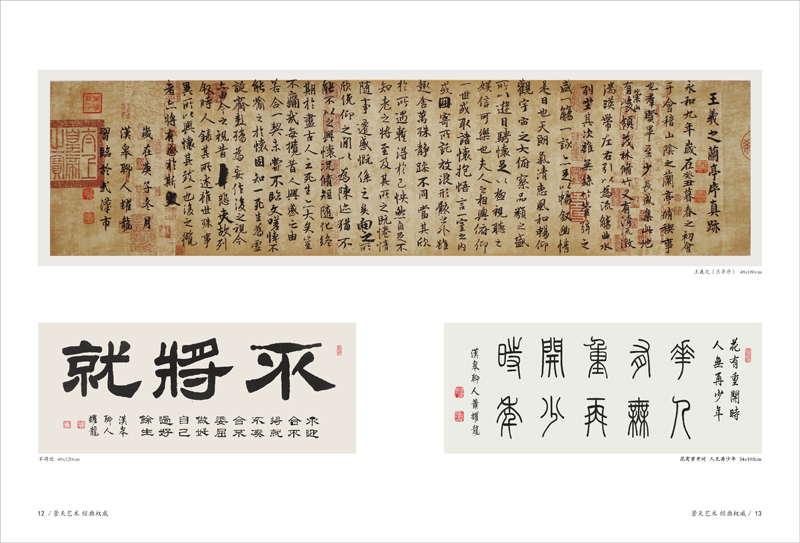 王羲之蘭亭序真跡
永和九年歲在癸丑暮春之初會
于會稽山陰之蘭亭脩稧事
也群賢畢至少長咸集此地
有崇山峻領茂林脩竹又有清流激
湍暎帶左右引以為流觴曲水
列坐其次雖無絲竹管弦之
盛一觴一詠亦足以暢敘幽情
是日也天朗氣清惠風和暢仰
觀宇宙之大俯察品類之盛
所以遊目騁懷足以極視聽之
娛信可樂也夫人之相與俯仰
一世或取諸懷抱悟言一室之內
或因寄所託放浪形骸之外雖
趣舍萬殊靜躁不同當其欣
於所遇暫得於己怏然自足不
知老之將至及其所之既惓情
隨事遷感慨係之矣向之所
欣俛仰之間以為陳迹猶不
能不以之興懷況脩短隨化終
期於盡古人云死生亦大矣豈
不痛哉每攬昔人興感之由
若合一契未嘗不臨文嗟悼不
能喻之於懷固知一死生為虛
誕齊彭殤為妄作後之視今
亦由今之視昔悲夫故列
敘時人錄其所述雖世殊事
異所以興懷其致一也後之攬
者亦將有感於斯
歲在庚子冬月
漢皋聊人耀龍
習臨於武漢市
王羲之《兰亭序》 46x180cm
不將就
不迎
合不
將就
不湊
合不
委屈
做好
自己
過好
餘生
漢皋
聊人
耀龍
不将就 46x120cm
花有重開時
人無再少年
花人
有無
重再
開少
時年
漢皋聊人黃耀龍
花有重开时 人无再少年 34x103cm
12 / 景天艺术 经典权威
景天艺术 经典权威 / 13